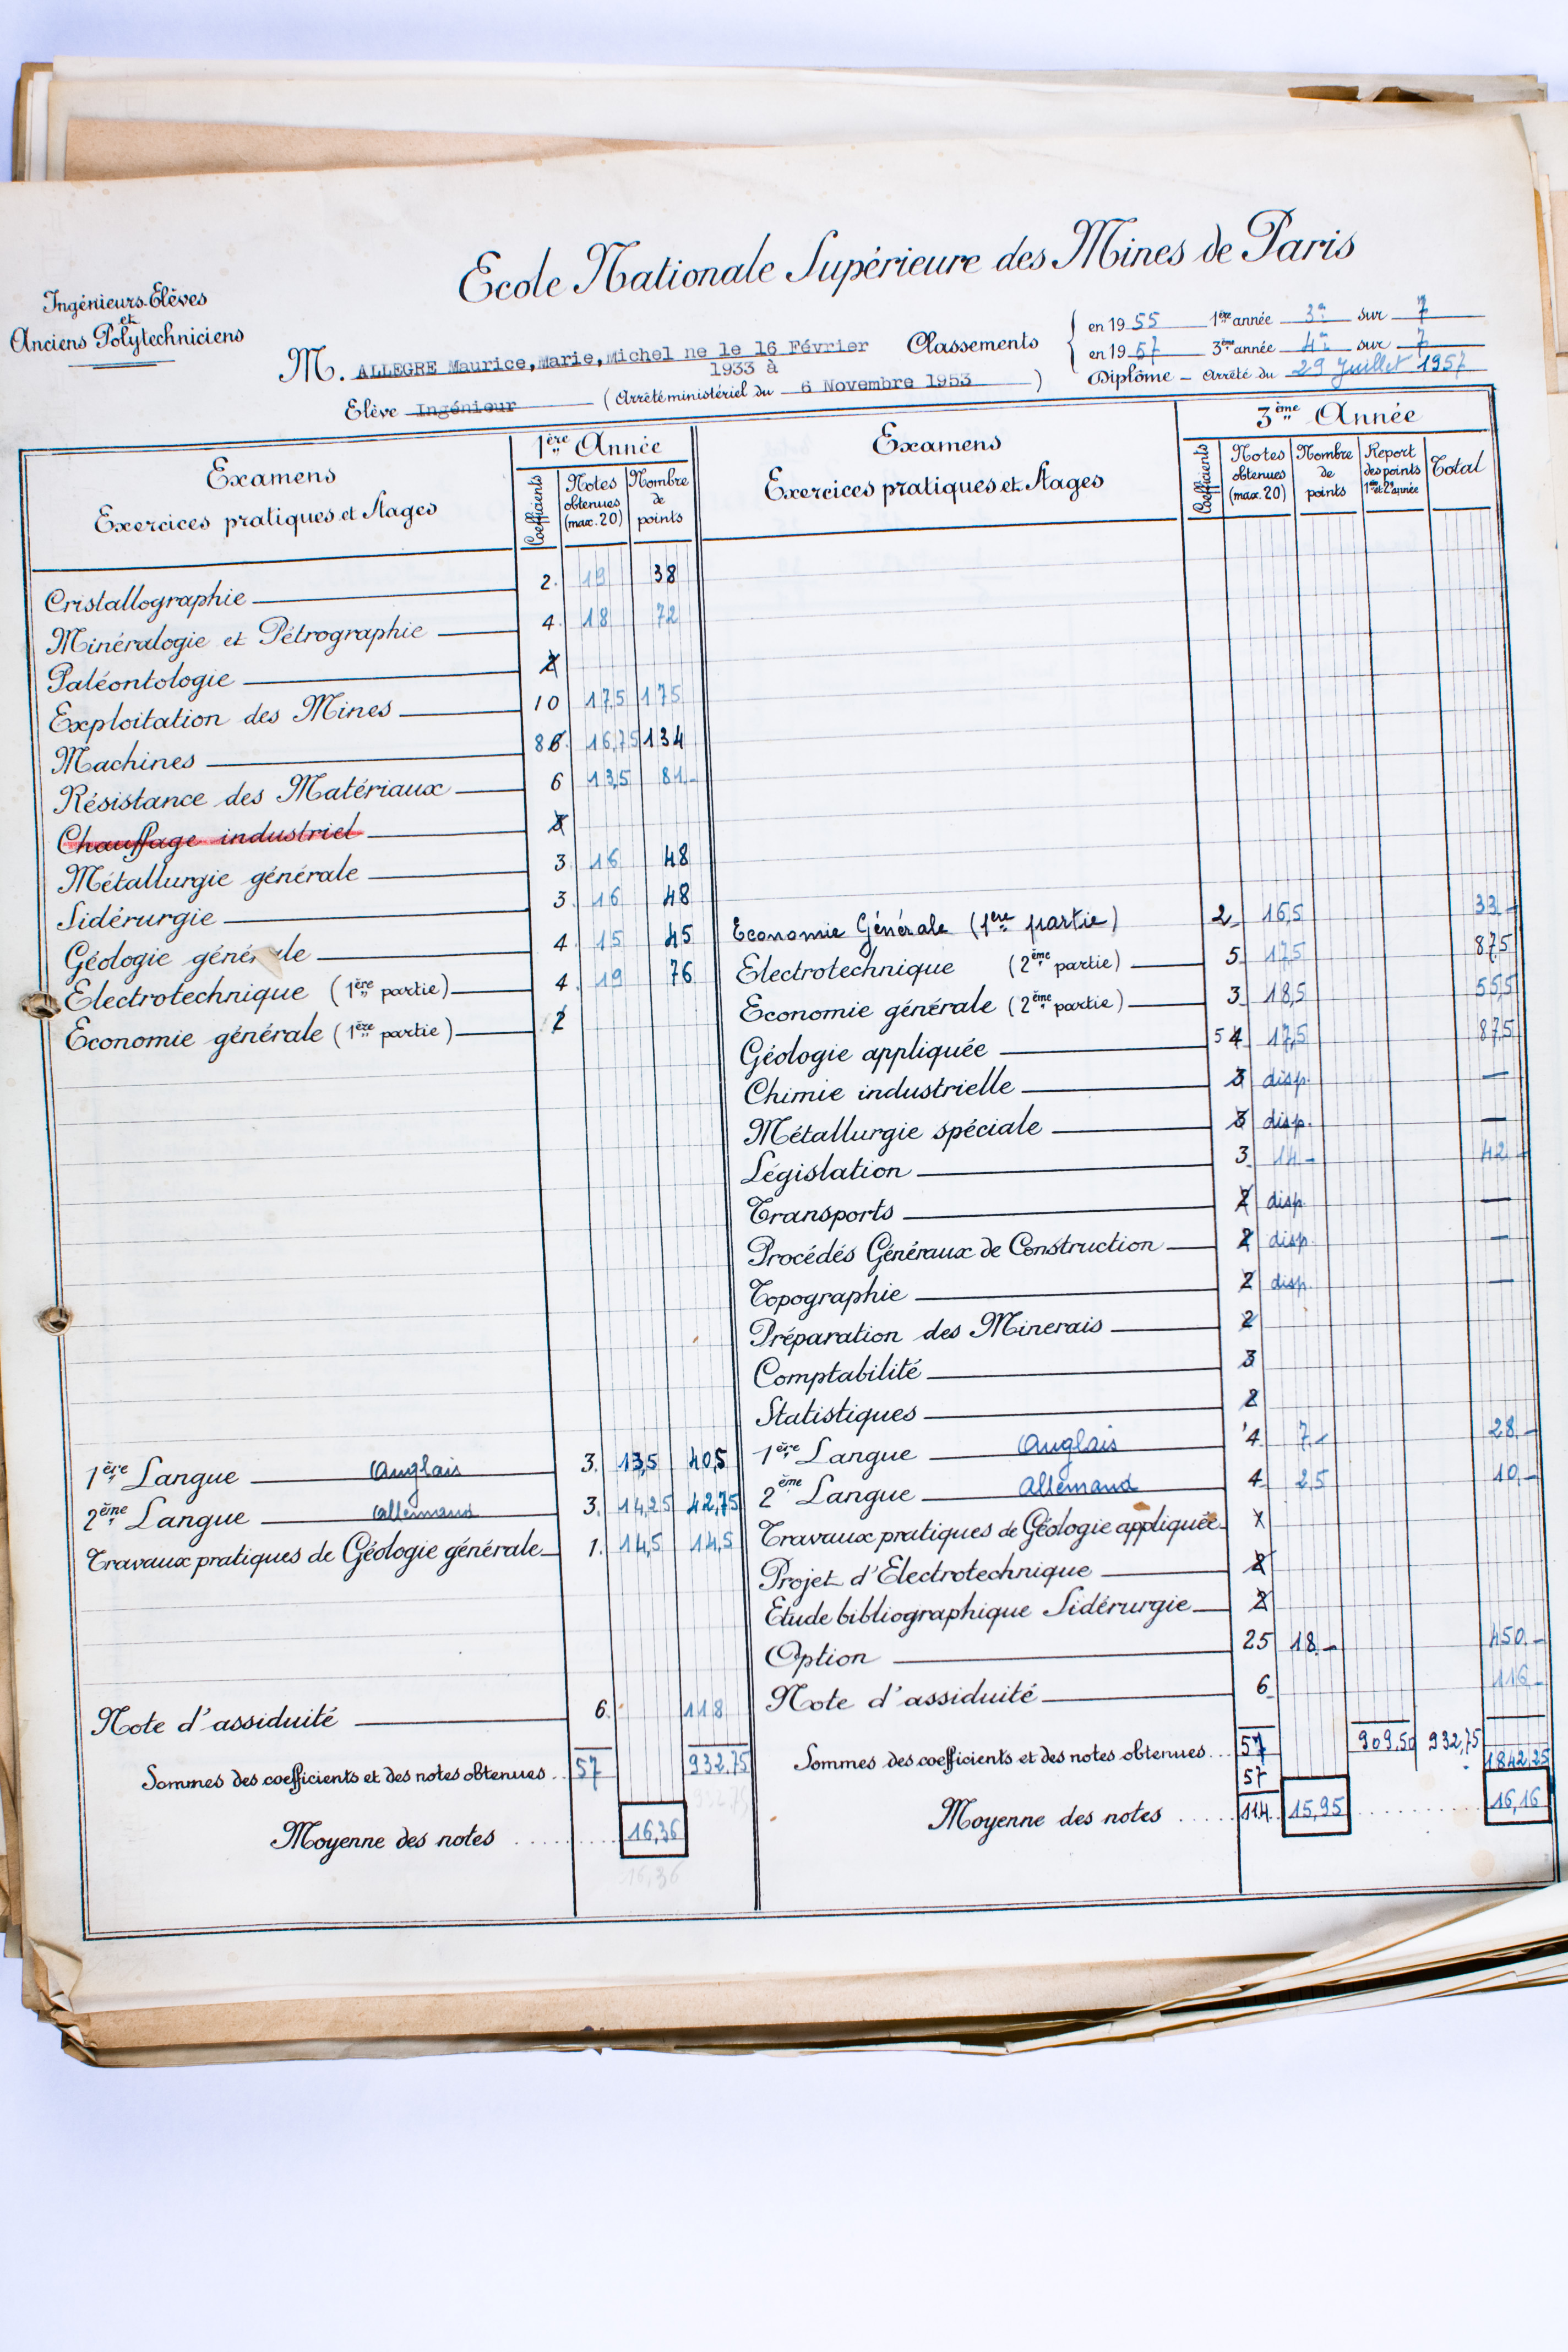 Ecole Nationale Supérieure des Mines de Paris
Ingénieurs-Elèves
et
Anciens Polytechniciens
M. ALLEGRE Maurice, Marie, Michel ne le 16 Février
1933 à
Elève Ingénieur (Arrêté ministériel du 6 Novembre 1953)
Classements
en 1955 1ère année 3e sur 7
en 1957 3ème année 4e sur 7
Diplôme - Arrêté du 29 Juillet 1957
Examens
Exercices pratiques et Stages
1ère Année
Coefficients
Notes obtenues (max. 20)
Nombre de points
Cristallographie 2. 19 38
Minéralogie et Pétrographie 4. 18 72
Paléontologie 2
Exploitation des Mines 10 17,5 175
Machines 8 6. 16,75 134
Résistance des Matériaux 6 13,5 81.-
Chauffage industriel 3
Métallurgie générale 3. 16 48
Sidérurgie 3. 16 48
Géologie générale 4. 15 45
Electrotechnique (1ère partie) 4. 19 76
Economie générale (1ère partie) 2
1ère Langue Anglais 3. 13,5 40,5
2ème Langue Allemand 3. 14,25 42,75
Travaux pratiques de Géologie générale 1. 14,5 14,5
Note d'assiduité 6. 118
Sommes des coefficients et des notes obtenues .. 57 932,75
932,75
Moyenne des notes 16,36
16,36
Examens
Exercices pratiques et Stages
3ème Année
Coefficients
Notes obtenues (max. 20)
Nombre de points
Report des points 1ère et 2e année
Total
Economie Générale (1ère partie) 2 16,5 33.-
Electrotechnique (2ème partie) 5. 17,5 87,5
Economie générale (2ème partie) 3 18,5 55,5
Géologie appliquée 5 4 17,5 87,5
Chimie industrielle 3 disp. —
Métallurgie spéciale 3 disp. —
Législation 3. 14- 42-
Transports 2 disp. —
Procédés Généraux de Construction 2 disp. —
Topographie 2 disp. —
Préparation des Minerais 2
Comptabilité 3
Statistiques 2
1ère Langue Anglais 4. 7.- 28.-
2ème Langue Allemand 4. 2,5 10.-
Travaux pratiques de Géologie appliquée 1
Projet d'Electrotechnique 2
Etude bibliographique Sidérurgie 2
Option 25 18.- 450.-
Note d'assiduité 6. 116-
Sommes des coefficients et des notes obtenues ... 57 909,50 932,75 1842,25
57
Moyenne des notes ..... 114 15,95 16,16